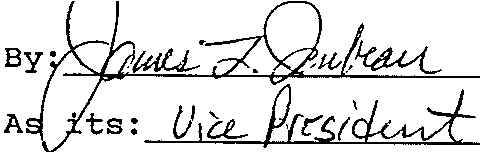 By: James L.
As its: Vice President